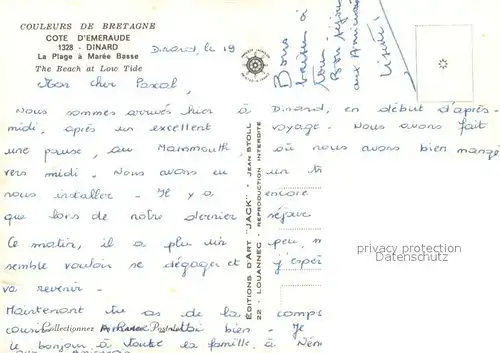 COULEURS DE BRETAGNE
COTE D'EMERAUDE
1328 - DINARD
La Plage à Marée Basse
The Beach at Low Tide
Dinard, le 19
Bons
baisers à
tous
Bon séjour
aux
Mon cher Pascal,
Nous sommes arrivés hier à Dinard, en début d'après-
midi, après un excellent voyage. Nous avons fait
une pause, au Mammouth où nous avons bien mangé
vers midi. Nous avons eu un
nous installer. Il y a encore
que lors de notre dernier séjour
Ce matin, il a plu un peu,
semble vouloir se dégager et j'espère
va revenir.
Maintenant tu as de la
Collectionnez bien - Je
le bonjour à toute la famille, à
EDITIONS D'ART "JACK" - JEAN STOLL
22 - LOUANNEC - REPRODUCTION INTERDITE
privacy protection
Datenschutz